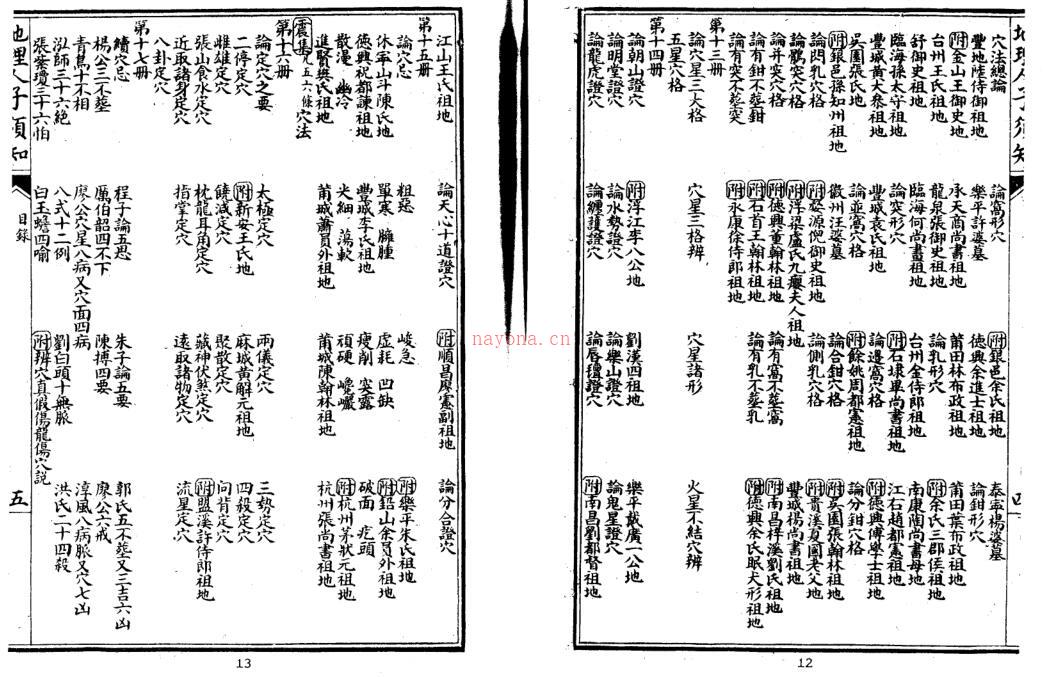 地理人子須知 四
穴法總論 論窩形穴 附銀邑余氏祖地 泰寧楊婆墓
豐地陸侍御祖地 樂平許婆墓 德興余進士祖地 論鉗形穴
附金山王御史地 承天商尚書祖地 莆田林布政祖地 莆田葉布政祖地
台州王氏祖地 龍泉張御史祖地 論乳形穴 附余氏三郡侯祖地
舒御史祖地 臨海何尚書祖地 台州金侍郎祖地 南康陶尚書母地
臨海孫太守祖地 論突形穴 附石埭畢尚書祖地 江石趙都憲祖地
豐城黃大參祖地 豐城袁氏祖地 論邊窩穴格 附德興傅學士祖地
吳園張氏地 論並窩穴格 附餘姚周都憲祖地 論分鉗穴格
附銀邑孫知州祖地 徽州汪婆墓 論合鉗穴格 附吳園張翰林祖地
論閃乳穴格 附婺源倪御史祖地 論側乳穴格 附貴溪夏國老父地
論鶻突穴格 附浮梁盧氏九癭夫人祖地 豐城楊尚書祖地
論並突穴格 附德興董翰林祖地 論有窩不葬窩 附南昌梓溪劉氏祖地
論有鉗不葬鉗 附石首王翰林祖地 論有乳不葬乳 附德興余氏眠犬形祖地
論有突不葬突 附永康徐侍郎祖地
第十三冊
論穴星三大格 穴星三格辨 穴星諸形 火星不結穴辨
五星穴格
第十四冊
論朝山證穴 附浮江李八公地 劉漢四祖地 樂平戴廣一公地
論明堂證穴 論水勢證穴 論樂山證穴 論鬼星證穴
論龍虎證穴 論纏護證穴 論唇氈證穴 附南昌劉都督祖地
12
江山王氏祖地 論天心十道證穴 附順昌廖憲副祖地 論分合證穴
第十五冊
論穴忌 粗惡 峻急 附樂平朱氏祖地
休寧山斗陳氏地 單寒 臃腫 虛耗 凹缺 附鉛山余員外祖地
德興祝都諫祖地 豐城李氏祖地 瘦削 突露 破面 疙頭
散漫 幽冷 尖細 蕩軟 頑硬 巉巖 附杭州茅狀元祖地
進賢樊氏祖地 莆城蕭員外祖地 莆城陳翰林祖地 杭州張尚書祖地
震集 凡五六條 穴法
第十六冊
論定穴之要 太極定穴 兩儀定穴 三勢定穴
二停定穴 附新安王氏地 麻城黃解元祖地 四殺定穴
雌雄定穴 饒減定穴 聚散定穴 向背定穴
張山食水定穴 枕龍耳角定穴 藏神伏煞定穴 附盟溪許侍郎祖地
近取諸身定穴 指掌定穴 遠取諸物定穴 流星定穴
八卦定穴
第十七冊
續穴忌 程子論五患 朱子論五要 郭氏五不葬又三吉六凶
楊公三不葬 厲伯韶四不下 陳搏四要 廖公六戒
青烏十不相 廖公穴星八病又穴面四病 淳風八病脈又穴七凶
泓師三十六絕 八式十二例 劉白頭十無脈 洪氏二十四殺
張紫瓊三十六怕 白玉蟾四喻 附辨穴真假傷龍傷穴說
地理人子須知 目錄 五
13
nayona.cn